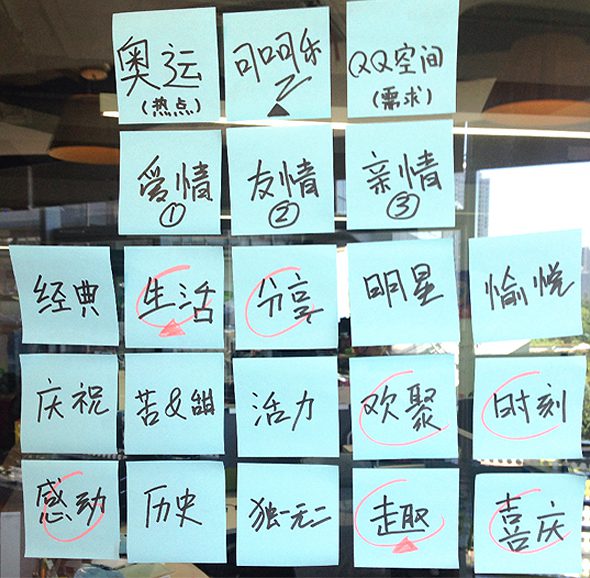 奥运 可口可乐 QQ空间
(热点) (需求)
爱情 友情 亲情
① ② ③
经典 生活 分享 明星 愉悦
庆祝 苦&甜 活力 欢聚 时刻
感动 历史 独一无二 趣 喜庆